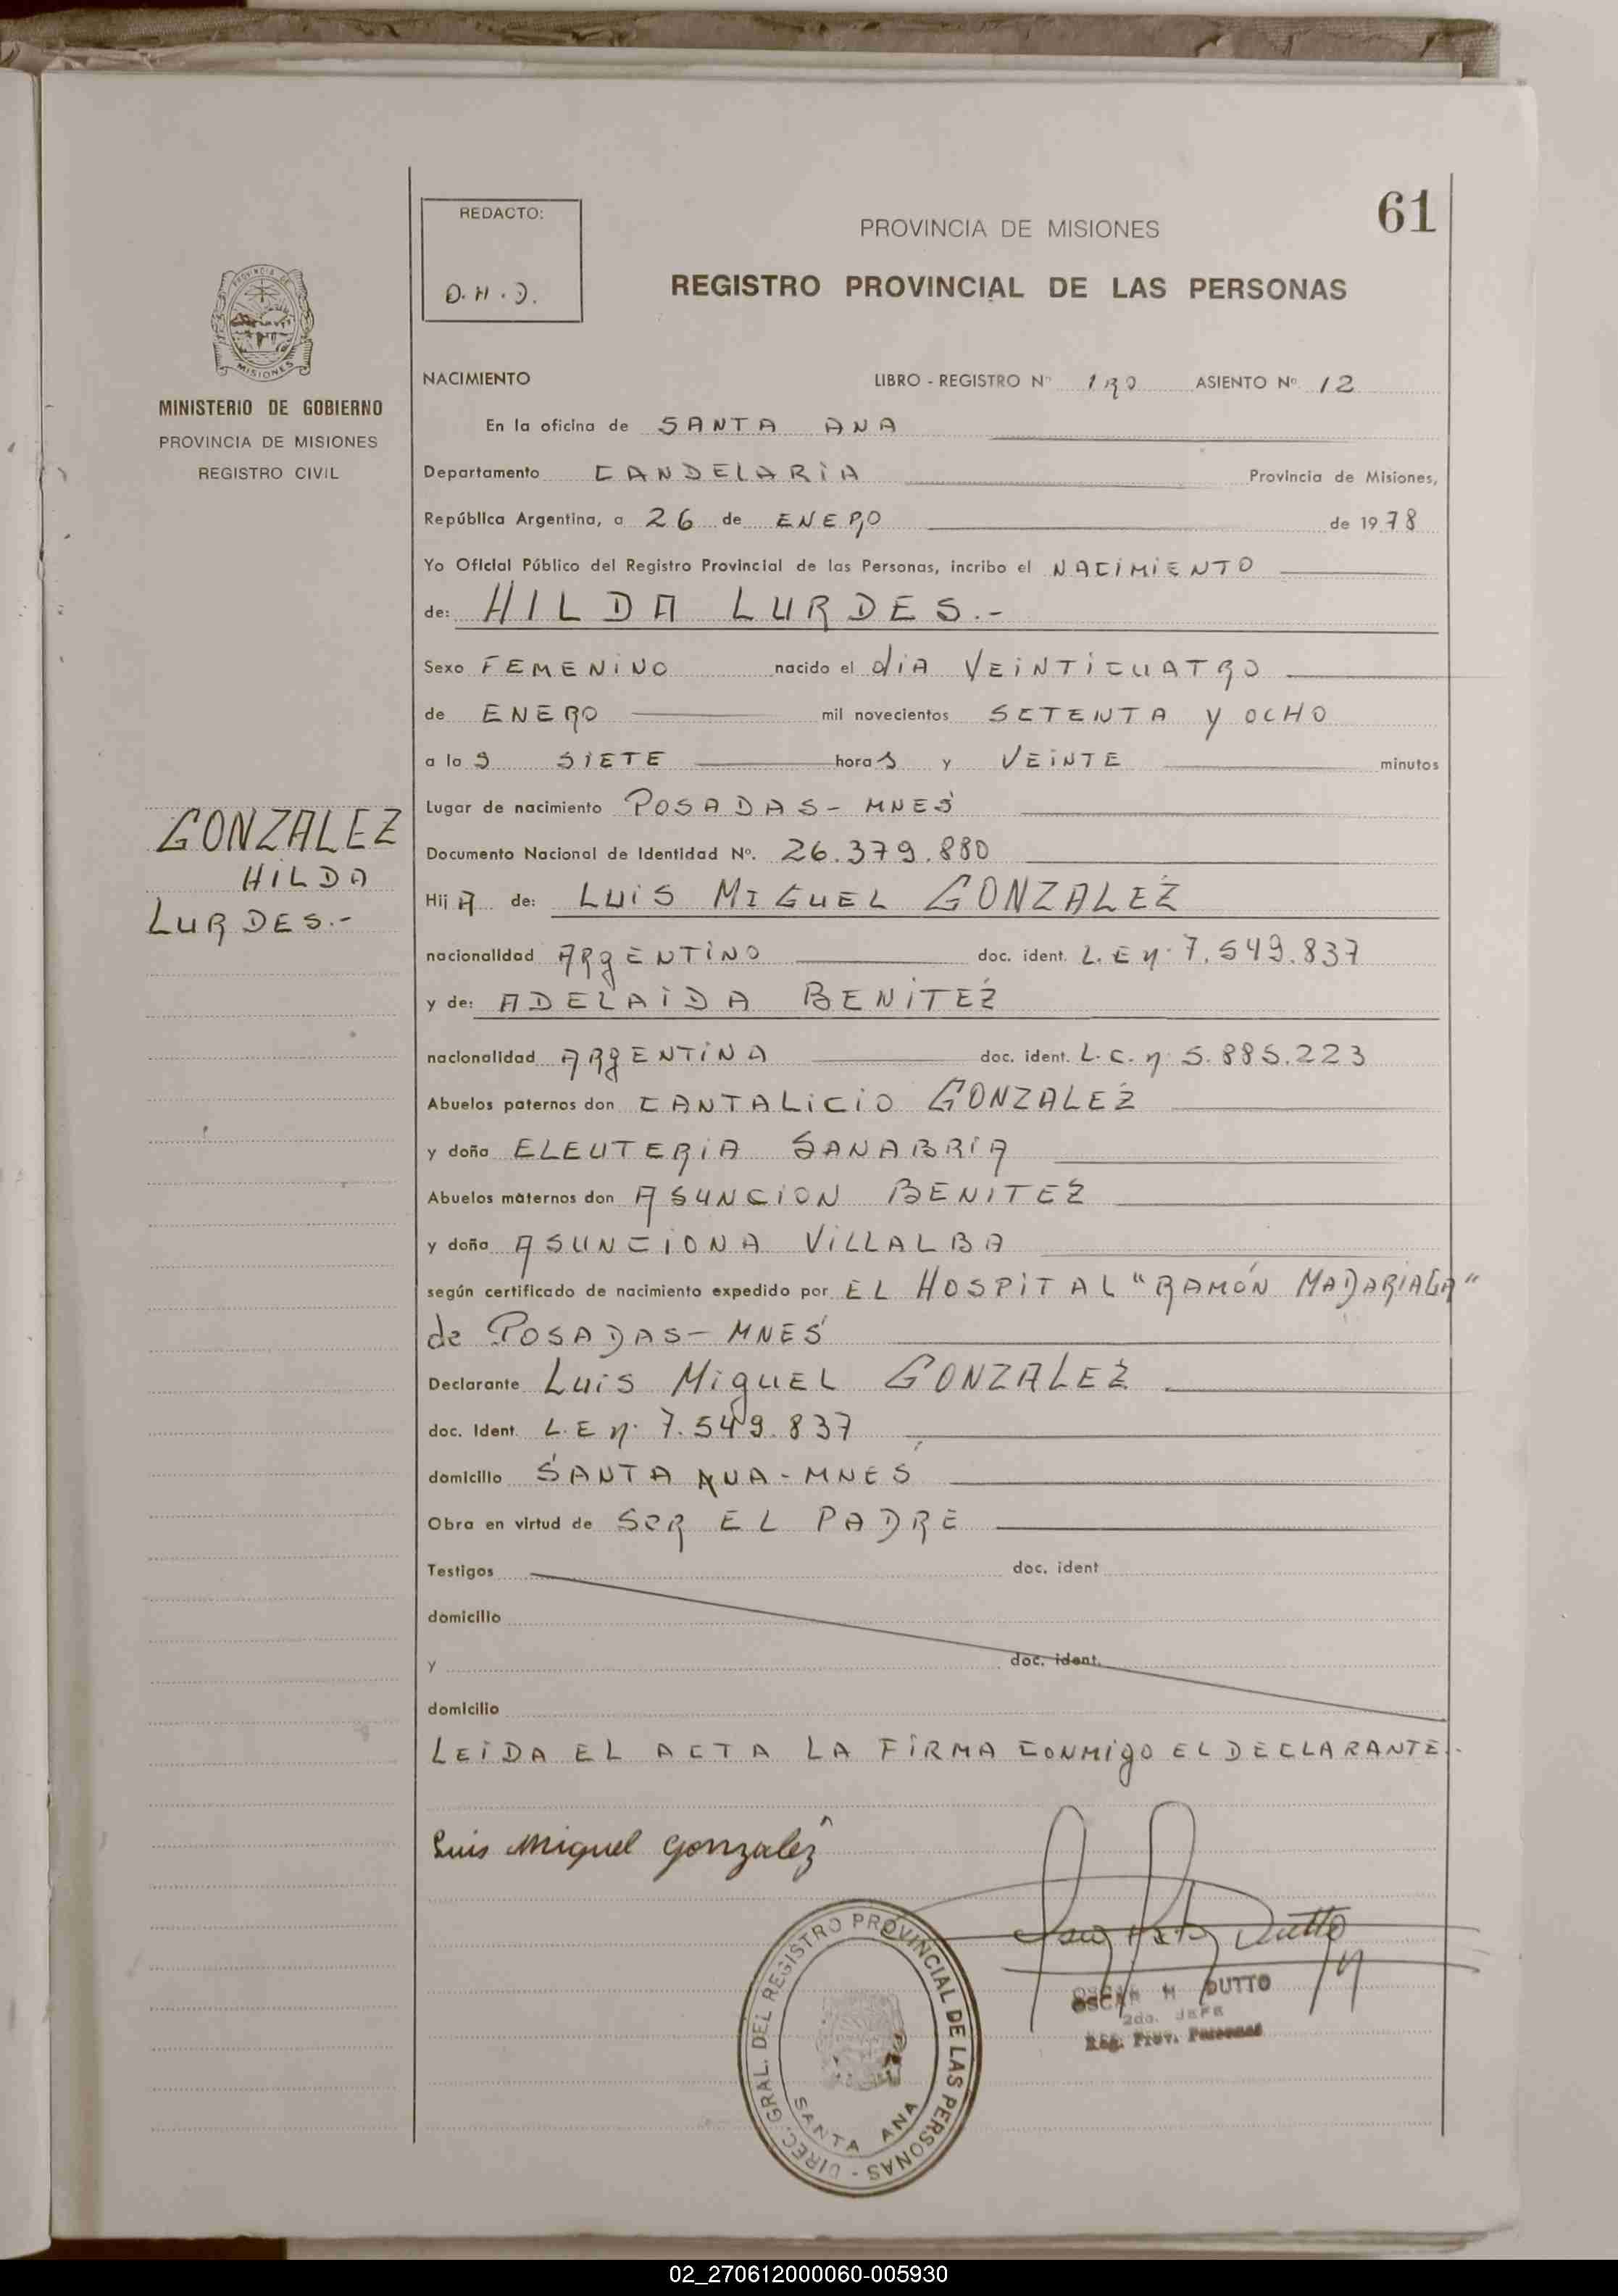 61
REDACTO:
O.H.D.
PROVINCIA DE MISIONES
REGISTRO PROVINCIAL DE LAS PERSONAS
PROVINCIA DE
MISIONES
MINISTERIO DE GOBIERNO
PROVINCIA DE MISIONES
REGISTRO CIVIL
GONZALEZ
HILDA
LURDES.-
NACIMIENTO LIBRO - REGISTRO Nº ASIENTO Nº 12
En la oficina de SANTA ANA
Departamento CANDELARIA Provincia de Misiones,
República Argentina, a 26 de ENERO de 1978
Yo Oficial Público del Registro Provincial de las Personas, incribo el NACIMIENTO
de: HILDA LURDES.-
Sexo FEMENINO nacido el dIA VEINTICUATRO
de ENERO mil novecientos SETENTA Y OCHO
a las SIETE horas y VEINTE minutos
Lugar de nacimiento POSADAS - MNES
Documento Nacional de Identidad Nº. 26.379.880
HijA de: LUIS MIGUEL GONZALEZ
nacionalidad ARgENTINO doc. ident. L.E nº 7.549.837
y de: ADELAIDA BENITEZ
nacionalidad ARgENTINA doc. ident. L.C. nº 5.885.223
Abuelos paternos don CANTALICIO GONZALEZ
y doña ELEUTERIA SANABRIA
Abuelos maternos don ASUNCION BENITEZ
y doña ASUNCIONA VILLALBA
según certificado de nacimiento expedido por EL HOSPITAL "RAMÓN MADARIAGA"
de POSADAS - MNES
Declarante LUIS MIGUEL GONZALEZ
doc. Ident. L.E nº 7.549.837
domicilio SANTA ANA - MNES
Obra en virtud de SER EL PADRE
Testigos doc. ident
domicilio
y doc. ident.
domicilio
LEIDA EL ACTA LA FIRMA CONMIgO EL DECLARANTE.-
Luis Miguel gonzalez
Dutto
OSCAR H DUTTO
2do. JEFE
Reg. Prov. Personas
DIREC. GRAL. DEL REGISTRO PROVINCIAL DE LAS PERSONAS -
SANTA ANA
02_270612000060-005930